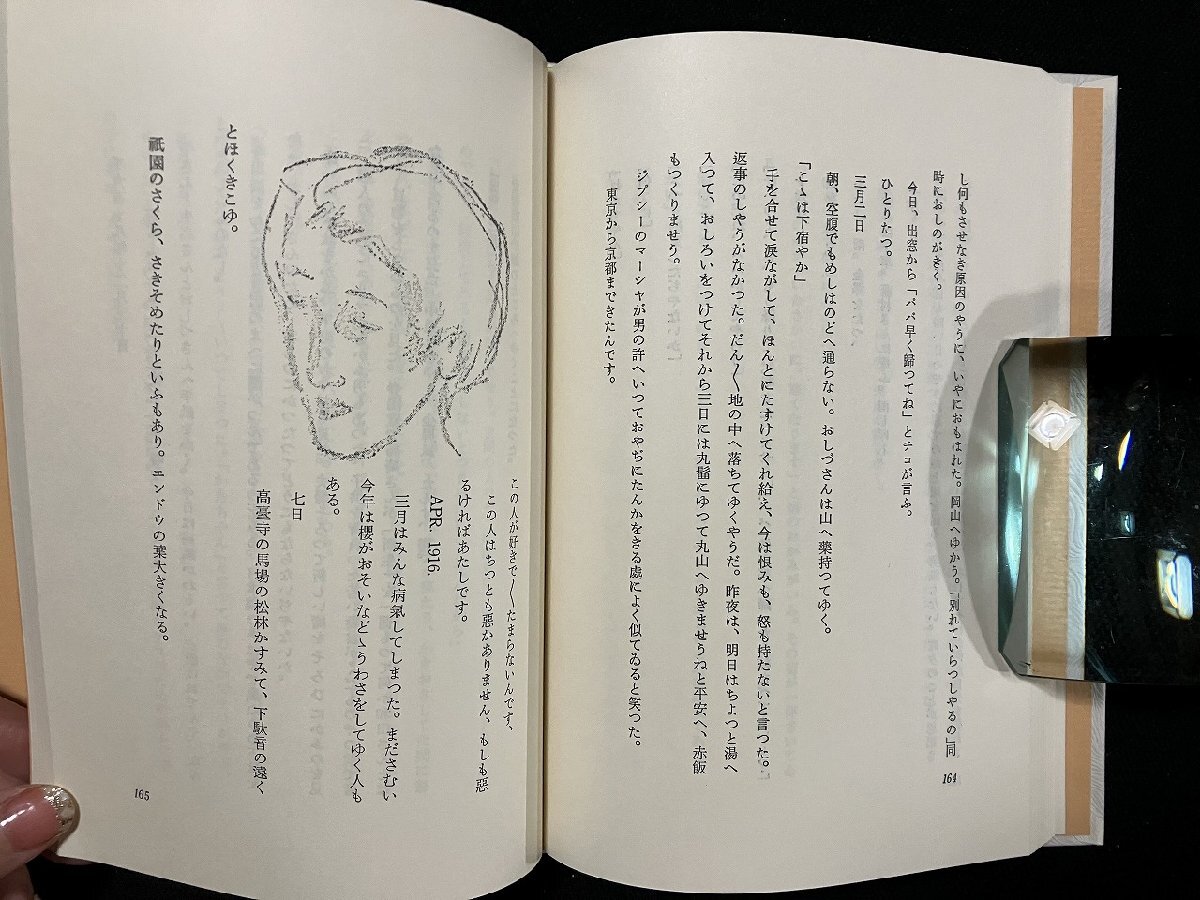 し何もさせなき原因のやうに、いやにおもはれた。岡山へゆかう。「別れていらつしやるの」同
時におしのがきく。
今日、出窓から「パパ早く歸つてね」とチコが言ふ。
ひとりたつ。
三月二日
朝、空腹でもめしはのどへ通らない。おしづさんは山へ藥持つてゆく。
「こゝは下宿やか」
手を合せて涙ながして、ほんとにたすけてくれ給え、今は恨みも、怒も持たないと言つた。
返事のしやうがなかつた。だん〳〵地の中へ落ちてゆくやうだ。昨夜は、明日はちよつと湯へ
入つて、おしろいをつけてそれから三日には丸髷にゆつて丸山へゆきませうねと平安へ、赤飯
もつくりませう。
ジプシーのマーシヤが男の許へいつておやぢにたんかをきる處によく似てゐると笑つた。
東京から京都まできたんです。
164
この人が好きで〳〵たまらないんです、
この人はちつとも惡かありません、もしも惡
るければあたしです。
APR. 1916.
三月はみんな病氣してしまつた。まださむい
今年は櫻がおそいなどゝうわさをしてゆく人も
ある。
七日
高臺寺の馬場の松林かすみて、下駄音の遠く
とほくきこゆ。
祇園のさくら、さきそめたりといふもあり。ニンドウの葉大きくなる。
165